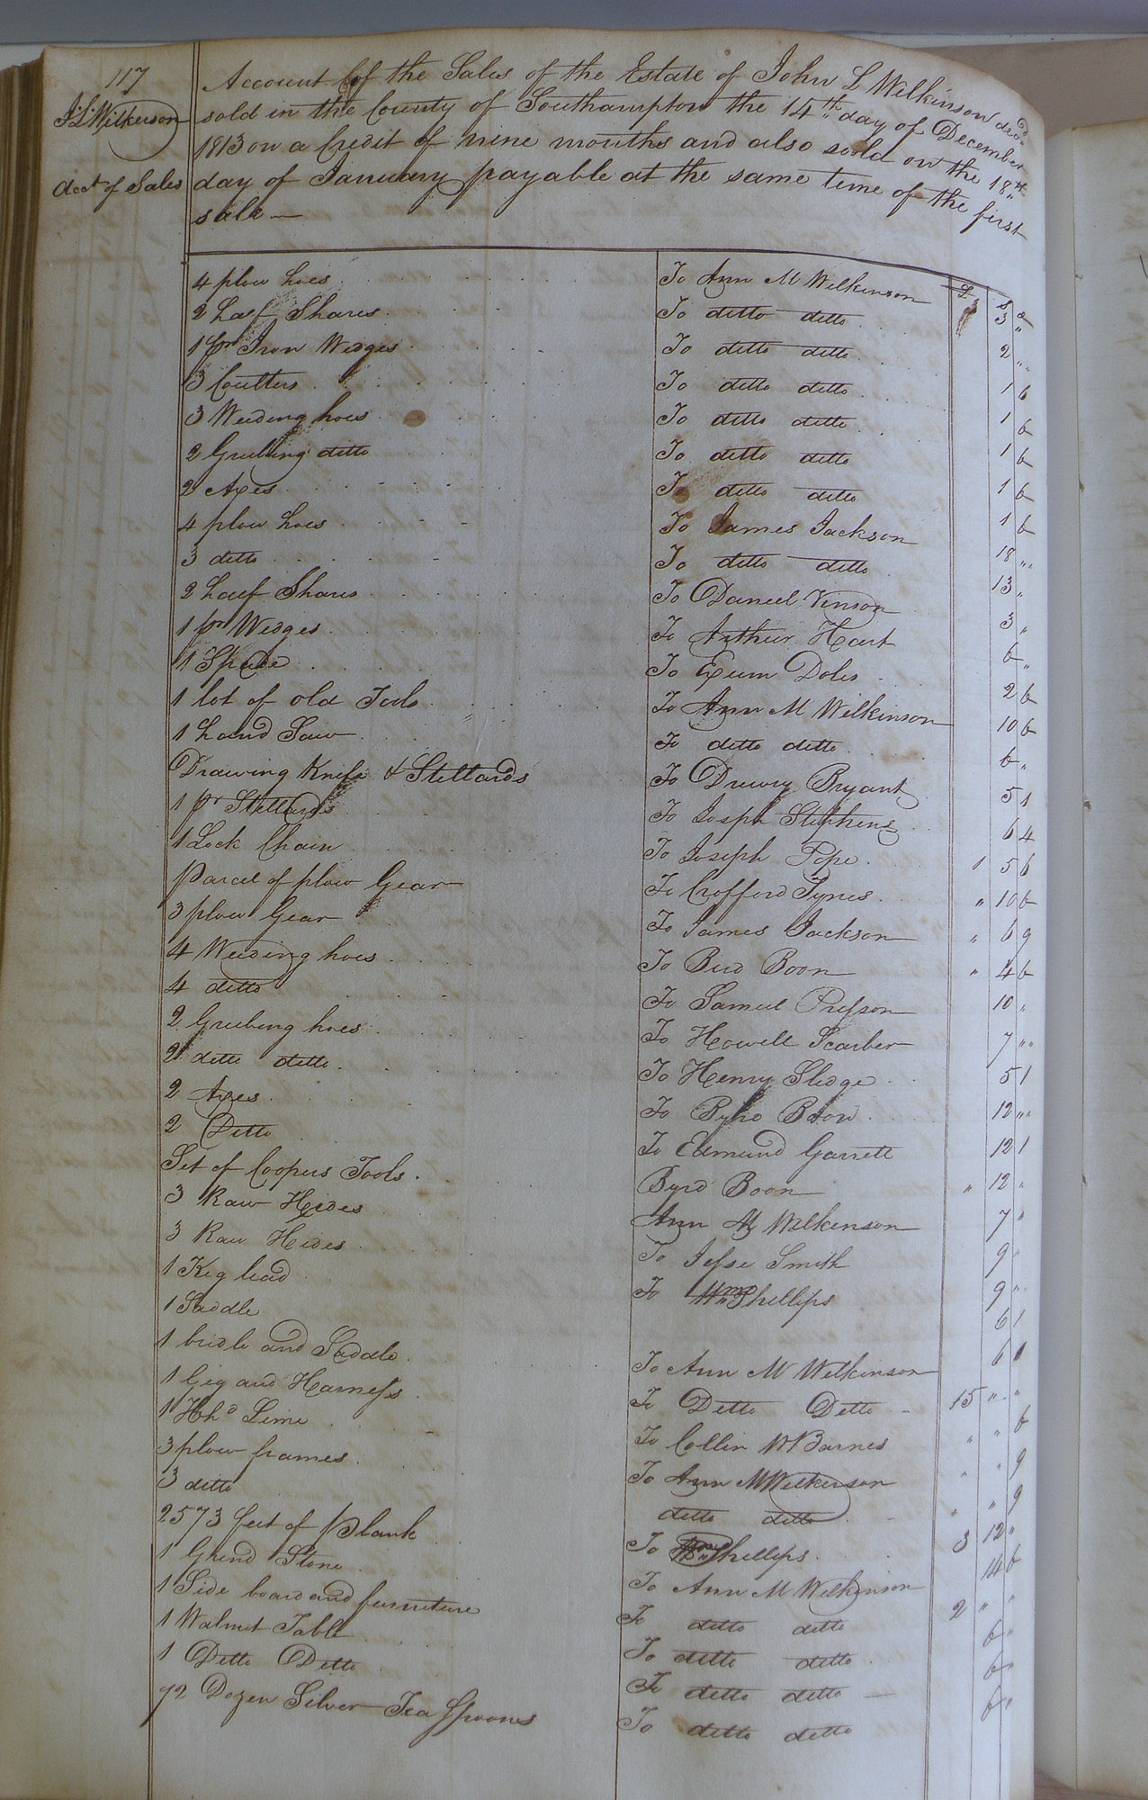 117
J. L. Wilkerson
Acct of Sales
Account of the Sales of the Estate of John L Wilkinson decd
sold in the County of Southampton the 14th day of December
1813 on a Credit of nine months and also sold on the 18th
day of January payable at the same time of the first
sale —
£ s d
4 plow hoes To Ann M Wilkinson 3 "
2 half Shares To ditto ditto 2 "
1 pr Iron Wedges To ditto ditto 1 6
3 Coulters To ditto ditto 1 6
3 Weeding hoes To ditto ditto 1 6
2 Grubing ditto To ditto ditto 1 6
2 Axes To ditto ditto 1 6
4 plow hoes To James Jackson 18 "
3 ditto To ditto ditto 13 "
2 half Shares To Daniel Vinson 3 "
1 pr Wedges To Arthur Hart 6 "
1 Spade To Exum Doles 2 6
1 lot of old Tools To Ann M Wilkinson 10 6
1 hand Saw To ditto ditto 6 "
Drawing Knife & Stillards To Drewry Bryant 5 1
1 pr Stillards To Joseph Stephens 6 4
1 Lock Chain To Joseph Pope 1 5 6
Parcel of plow Gear To Crofford Tynes " 10 6
3 plow Gear To James Jackson " 6 9
4 Weeding hoes To Bird Boon " 4 6
4 ditto To Samuel Presson 10 "
2 Grubing hoes To Howell Scarber 7 "
2 ditto ditto To Henry Sledge 5 1
2 Axes To Byrd Boon 12 "
2 Ditto To Edmund Garrett 12 1
Set of Coopers Tools Byrd Boon " 12 "
3 Raw Hides Ann M Wilkinson 7 "
3 Raw Hides To Jesse Smith 9 "
1 Keg lead To Wm Phillips 9 "
1 Saddle 6 1
1 bridle and Saddle To Ann M Wilkinson 6
1 Gig and Harness To Ditto Ditto 15 " "
1 Hhd Lime To Collin W Barnes " " 6
3 plow frames To Ann M Wilkinson " " 9
3 ditto ditto ditto " " 9
2573 feet of Plank To Wm Phillips 3 12 "
1 Grind Stone To Ann M Wilkinson 14 6
1 Side board and furniture To ditto ditto 2 " "
1 Walnut Table To ditto ditto 6 "
1 Ditto Ditto To ditto ditto 6 "
Dozen Silver Tea Spoons To ditto ditto 6 "